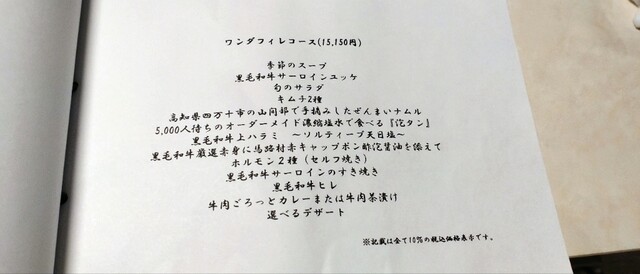 ワンダフィレコース(15,150円)
季節のスープ
黒毛和牛サーロインユッケ
旬のサラダ
キムチ2種
高知県四万十市の山間部で手摘みしたぜんまいナムル
5,000人待ちのオーダーメイド濃縮塩水で食べる『沱タン』
黒毛和牛上ハラミ ～ソルティーブ天日塩～
黒毛和牛厳選赤身に馬路村赤キャップポン酢沱醤油を添えて
ホルモン2種(セルフ焼き)
黒毛和牛サーロインのすき焼き
黒毛和牛ヒレ
牛肉ごろっとカレーまたは牛肉茶漬け
選べるデザート
※記載は全て10%の税込価格表示です。